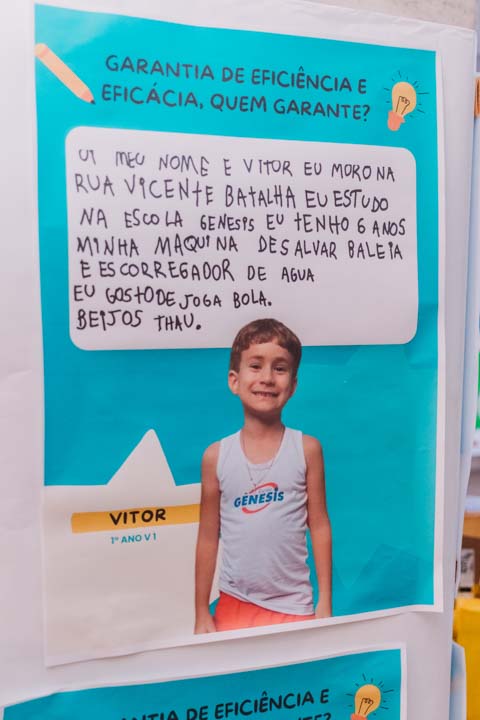 GARANTIA DE EFICIÊNCIA E
EFICÁCIA, QUEM GARANTE?
OI MEU NOME E VITOR EU MORO NA
RUA VICENTE BATALHA EU ESTUDO
NA ESCOLA GENESIS EU TENHO 6 ANOS
MINHA MAQUINA DESALVAR BALEIA
E ESCORREGADOR DE AGUA
EU GOSTO DE JOGA BOLA.
BEIJOS THAU.
GÊNESIS
VITOR
1º ANO V 1
ANTIA DE EFICIÊNCIA E